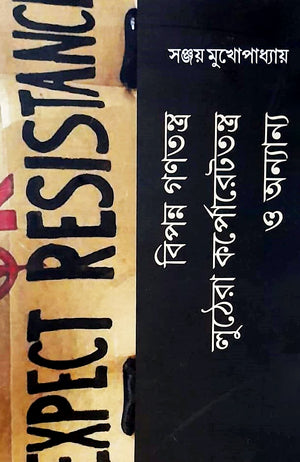 সঞ্জয় মুখোপাধ্যায়
বিপন্ন গণতন্ত্র
লুঠেরা কর্পোরেটতন্ত্র
ও অন্যান্য
EXPECT RESISTANCE